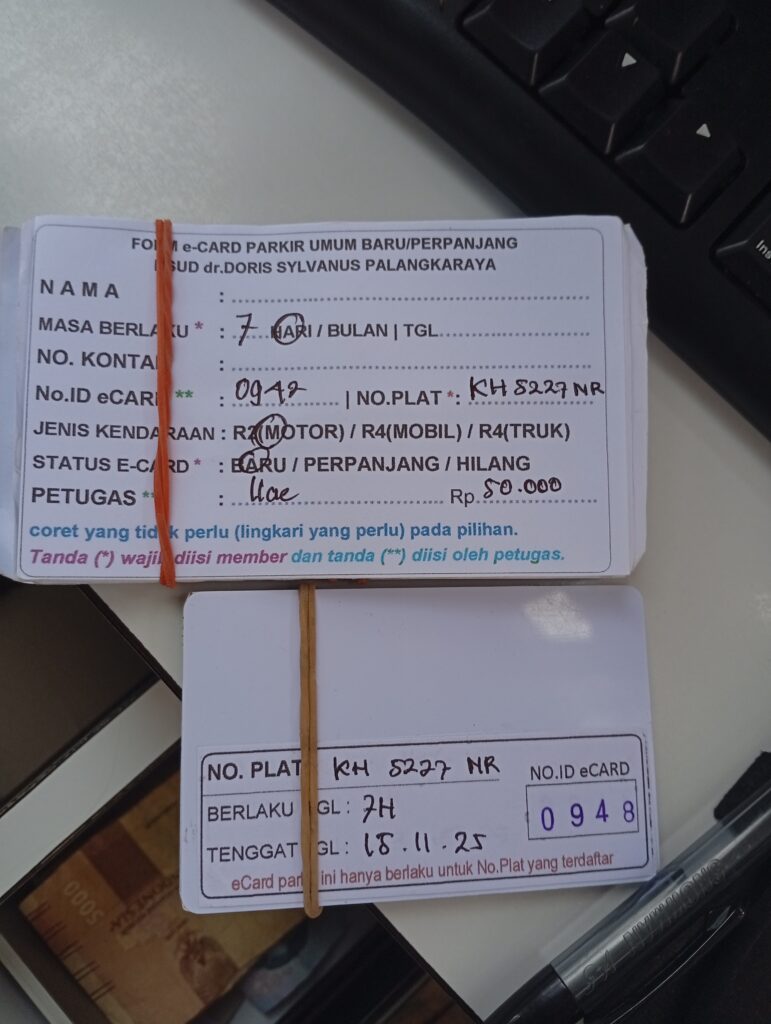 FORM e-CARD PARKIR UMUM BARU/PERPANJANG
RSUD dr.DORIS SYLVANUS PALANGKARAYA
N A M A :
MASA BERLAKU * : 7 HARI / BULAN | TGL
NO. KONTAK :
No.ID eCARD ** : 0948 | NO.PLAT *: KH 5227 NR
JENIS KENDARAAN : R2(MOTOR) / R4(MOBIL) / R4(TRUK)
STATUS E-CARD * : BARU / PERPANJANG / HILANG
PETUGAS ** : Rp. 50.000
coret yang tidak perlu (lingkari yang perlu) pada pilihan.
Tanda (*) wajib diisi member dan tanda (**) diisi oleh petugas.
NO. PLAT KH 5227 NR
NO.ID eCARD
0948
BERLAKU TGL : 7H
TENGGAT TGL : 18.11.25
eCard parkir ini hanya berlaku untuk No.Plat yang terdaftar
5000
Ins